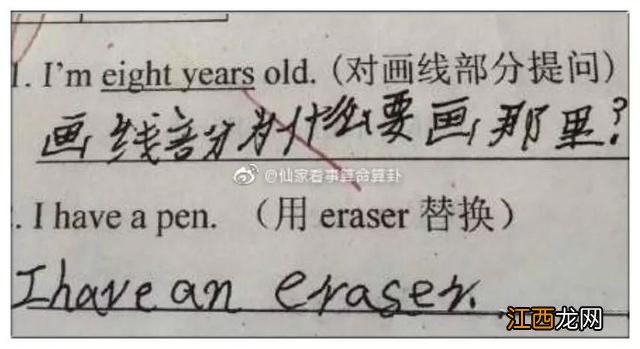 1. I'm eight years old. (对画线部分提问)
画线部分为什么要画那里?
@仙家看事算命算卦
. I have a pen. (用 eraser 替换)
I have an eraser.
江西龙网